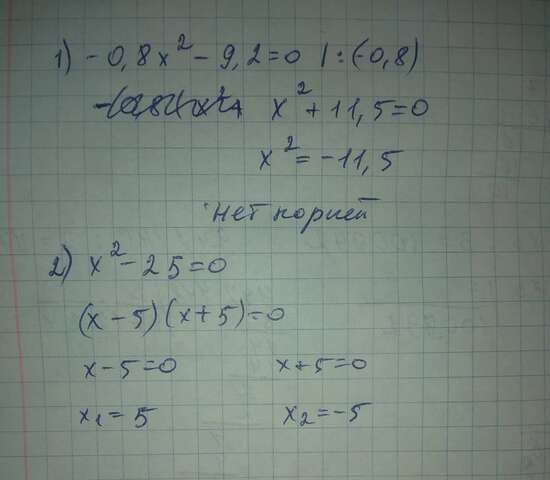 1) -0,8x² - 9,2=0 | :(-0,8)
x² + 11,5=0
x² = -11,5
нет корней
2) x² - 25=0
(x - 5)(x + 5)=0
x - 5=0 x + 5=0
x₁ = 5 x₂ = -5